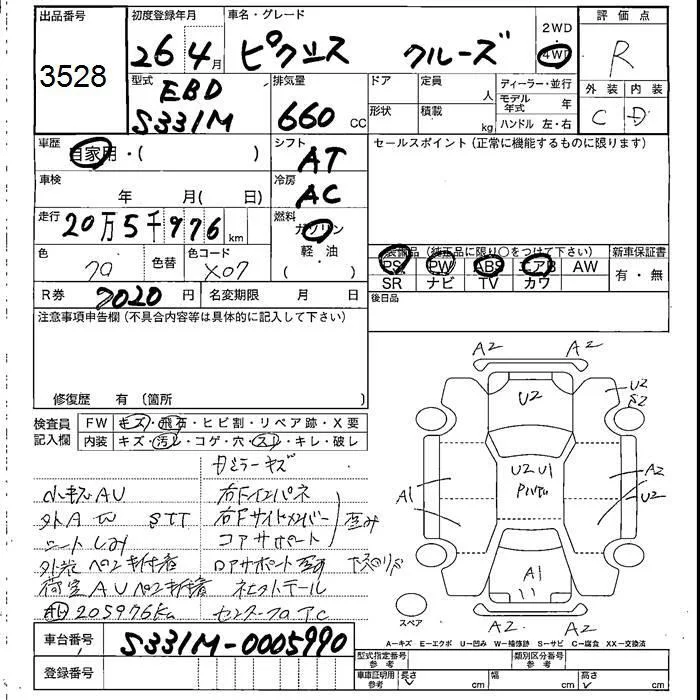 出品番号 初度登録年月 車名・グレード 2WD 評価点
3528 26年4月 ピクシス クルーズ 4WD R
型式 EBD 排気量 ドア 定員 人 ディーラー・並行 外装 内装
S331M 660 CC 形状 積載 kg モデル年式 年 C D
ハンドル 左・右
車歴 自家用・( ) シフト AT セールスポイント(正常に機能するものに限ります)
車検 年 月( 日) 冷房 AC
走行 20万5千976 km 燃料 ガソリン
軽・油
( )
色 色替 色コード X07
装備品(純正品に限り○をつけて下さい) 新車保証書
PS PW ABS エアB AW 有・無
SR ナビ TV カワ
R券 7020 円 名変期限 月 日 後日品
注意事項申告欄(不具合内容等は具体的に記入して下さい)
修復歴 有(箇所
検査員 FW キズ・飛石・ヒビ割・リペア跡・X要
記入欄 内装 キズ・汚レ・コゲ・穴・スレ・キレ・破レ
ミラーキズ
小キズAU 右Fインパネ
外A W STT 右Fサイドメンバー 歪み
シートしみ コアサポート
外装 ペロ2 ロアサポート
荷室AU ネロストテール
205976Km センターフロアC
A2 A2
U2
U2
S2
U2 U1
A1 A2
U2
A1
A2 A2
スペア
A-キズ E-エクボ U-凹み W-補修跡 S-サビ C-腐食 XX-交換済
車台番号 S331M-0005990
登録番号
型式指定番号 参考 類別区分番号 参考
車庫証明用 参考 長さ cm 幅 cm 高さ cm